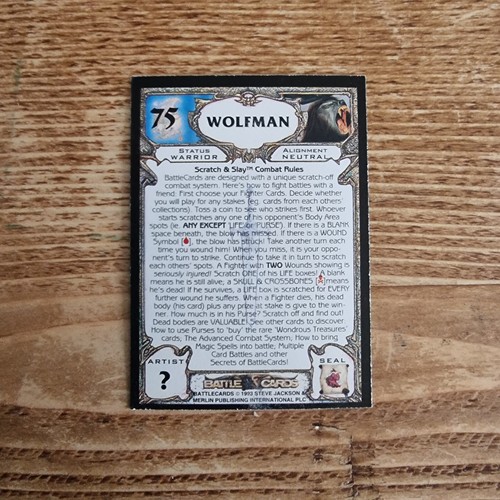 75
WOLFMAN
STATUS
WARRIOR
ALIGNMENT
NEUTRAL
Scratch & Slay™ Combat Rules
BattleCards are designed with a unique scratch-off
combat system. Here's how to fight battles with a
friend: First choose your Fighter Cards. Decide whether
you will play for any stakes (eg. cards from each others
collections). Toss a coin to see who strikes first. Whoever
starts scratches any one of his opponent's Body Area
spots (ie. ANY EXCEPT LIFE or PURSE). If there is a BLANK
space beneath, the blow has missed. If there is a WOUND
Symbol [ ], the blow has struck! Take another turn each
time you wound him! When you miss, it is your oppon-
ent's turn to strike. Continue to take it in turn to scratch
each others' spots. A Fighter with TWO Wounds showing is
seriously injured! Scratch ONE of his LIFE boxes! A blank
means he is still alive; a SKULL & CROSSBONES [ ] means
he's dead! If he survives, a LIFE box is scratched for EVERY
further wound he suffers. When a Fighter dies, his dead
body (his card) plus any prize at stake is give to the win-
ner. How much is in his Purse? Scratch off and find out!
Dead bodies are VALUABLE! See other cards to discover
How to use Purses to 'buy' the rare 'Wondrous Treasures'
cards, The Advanced Combat System, How to bring
Magic Spells into battle, Multiple
Card Battles and other
Secrets of BattleCards!
ARTIST
?
SEAL
BATTLE CARDS
BATTLECARDS © 1993 STEVE JACKSON &
MERLIN PUBLISHING INTERNATIONAL PLC